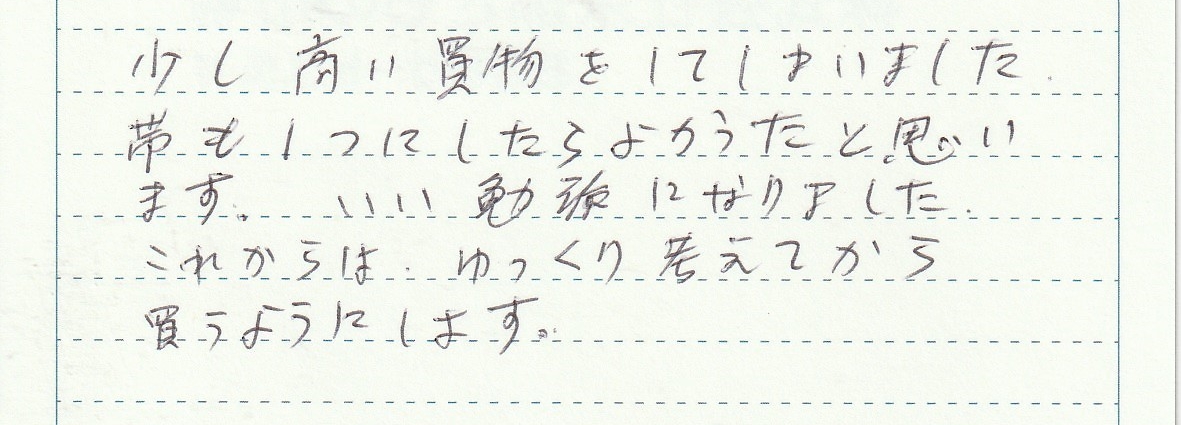 少し高い買物をしてしまいました.
帯も1つにしたらよかったと思い
ます。 いい勉強になりました.
これからは.ゆっくり考えてから
買うようにします。